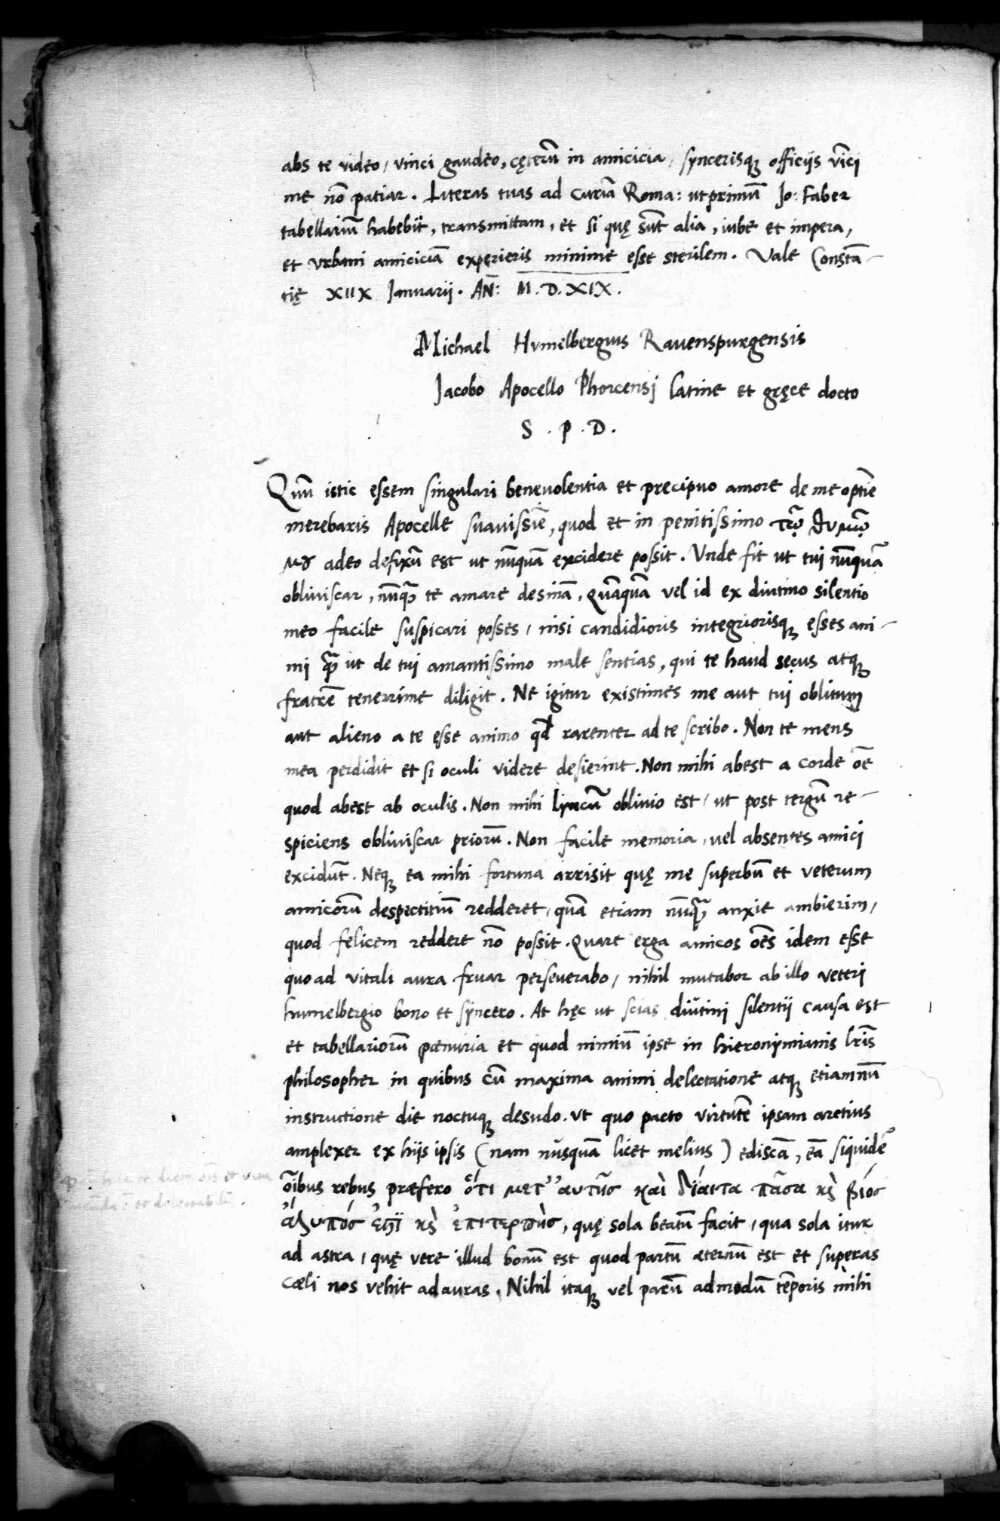 abs te video, vinci gaudeo, cęterũ in amicicia, syncerisq; officijs vĩci
me nõ patiar. Literas tuas ad Curiã Roma: ut primũ Jo: Faber
tabellariũ habebit, transmittam, et si quę sũt alia, iube et impera,
et Vrbani amiciciã experieris minime esse sterilem. Vale Constã-
tię XIIX Januarij. AÑ: M.D.XIX.
Michael Hvmelbergius Ravenspurgensis
Jacobo Apocello Phorcensj latine et gręce docto
S . P . D .
Quũ istic essem singulari benevolentia et precipuo amore de me optĩe
merebaris Apocelle suavissĩe, quod et in penitissimo τῷ θυμῷ
μȣ adeo defixũ est ut nũquã excidere possit. Unde fit ut tui nũquã
obliviscar, nũq̃ te amare desinã, quãquã vel id ex diutino silentio
meo facile suspicari posses, nisi candidioris integriorisq; esses ani-
mi q̃ ut de tui amantissimo male sentias, qui te haud secus atq;
fratrẽ tenerrime diligit. Ne igitur existimes me aut tui oblitum
aut alieno a te esse animo qđ rarenter ad te scribo. Non te mens
mea perdidit et si oculi videre desierint. Non mihi abest a corde oẽ
quod abest ab oculis. Non mihi lyncũ oblivio est, ut post tergũ re-
spiciens obliviscar priorũ. Non facile memoria, vel absentes amici
excidũt. Neq; ea mihi fortuna arrisit quę me superbũ et veterum
amicorũ despectitiũ redderet, quã etiam nũq̃ anxie ambierim,
quod felicem reddere nõ possit. Quare erga amicos oẽs idem esse
quoad vitali aura fruar perseverabo, nihil mutabor ab illo veteri
humelbergio bono et syncero. At hęc ut scias diũtini silentij causa est
et tabellariorũ pœnuria et quod nimiũ ipse in hieronymianis lr̃is
philosopher in quibus cũ maxima animi delectatione atq; etiamnũ
instructione die noctuq; desudo. Ut quo pacto virtutẽ ipsam arctius
amplexer ex hijs ipsis (nam nũsquã licet melius) ediscã, eã siquidẽ
oĩbus rebus præfero ὅτι μετ' αυτῆς καὶ δίαιτα πᾶσα κỳ βίος
ἄλυπός ἐϛῒ κỳ ἐπιτερπὴς, quę sola beatũ facit, qua sola itur
ad astra, quę vere illud bonũ est quod partũ æternũ est et superas
cæli nos vehit ad auras. Nihil itaq; vel parũ admodũ tẽporis mihi